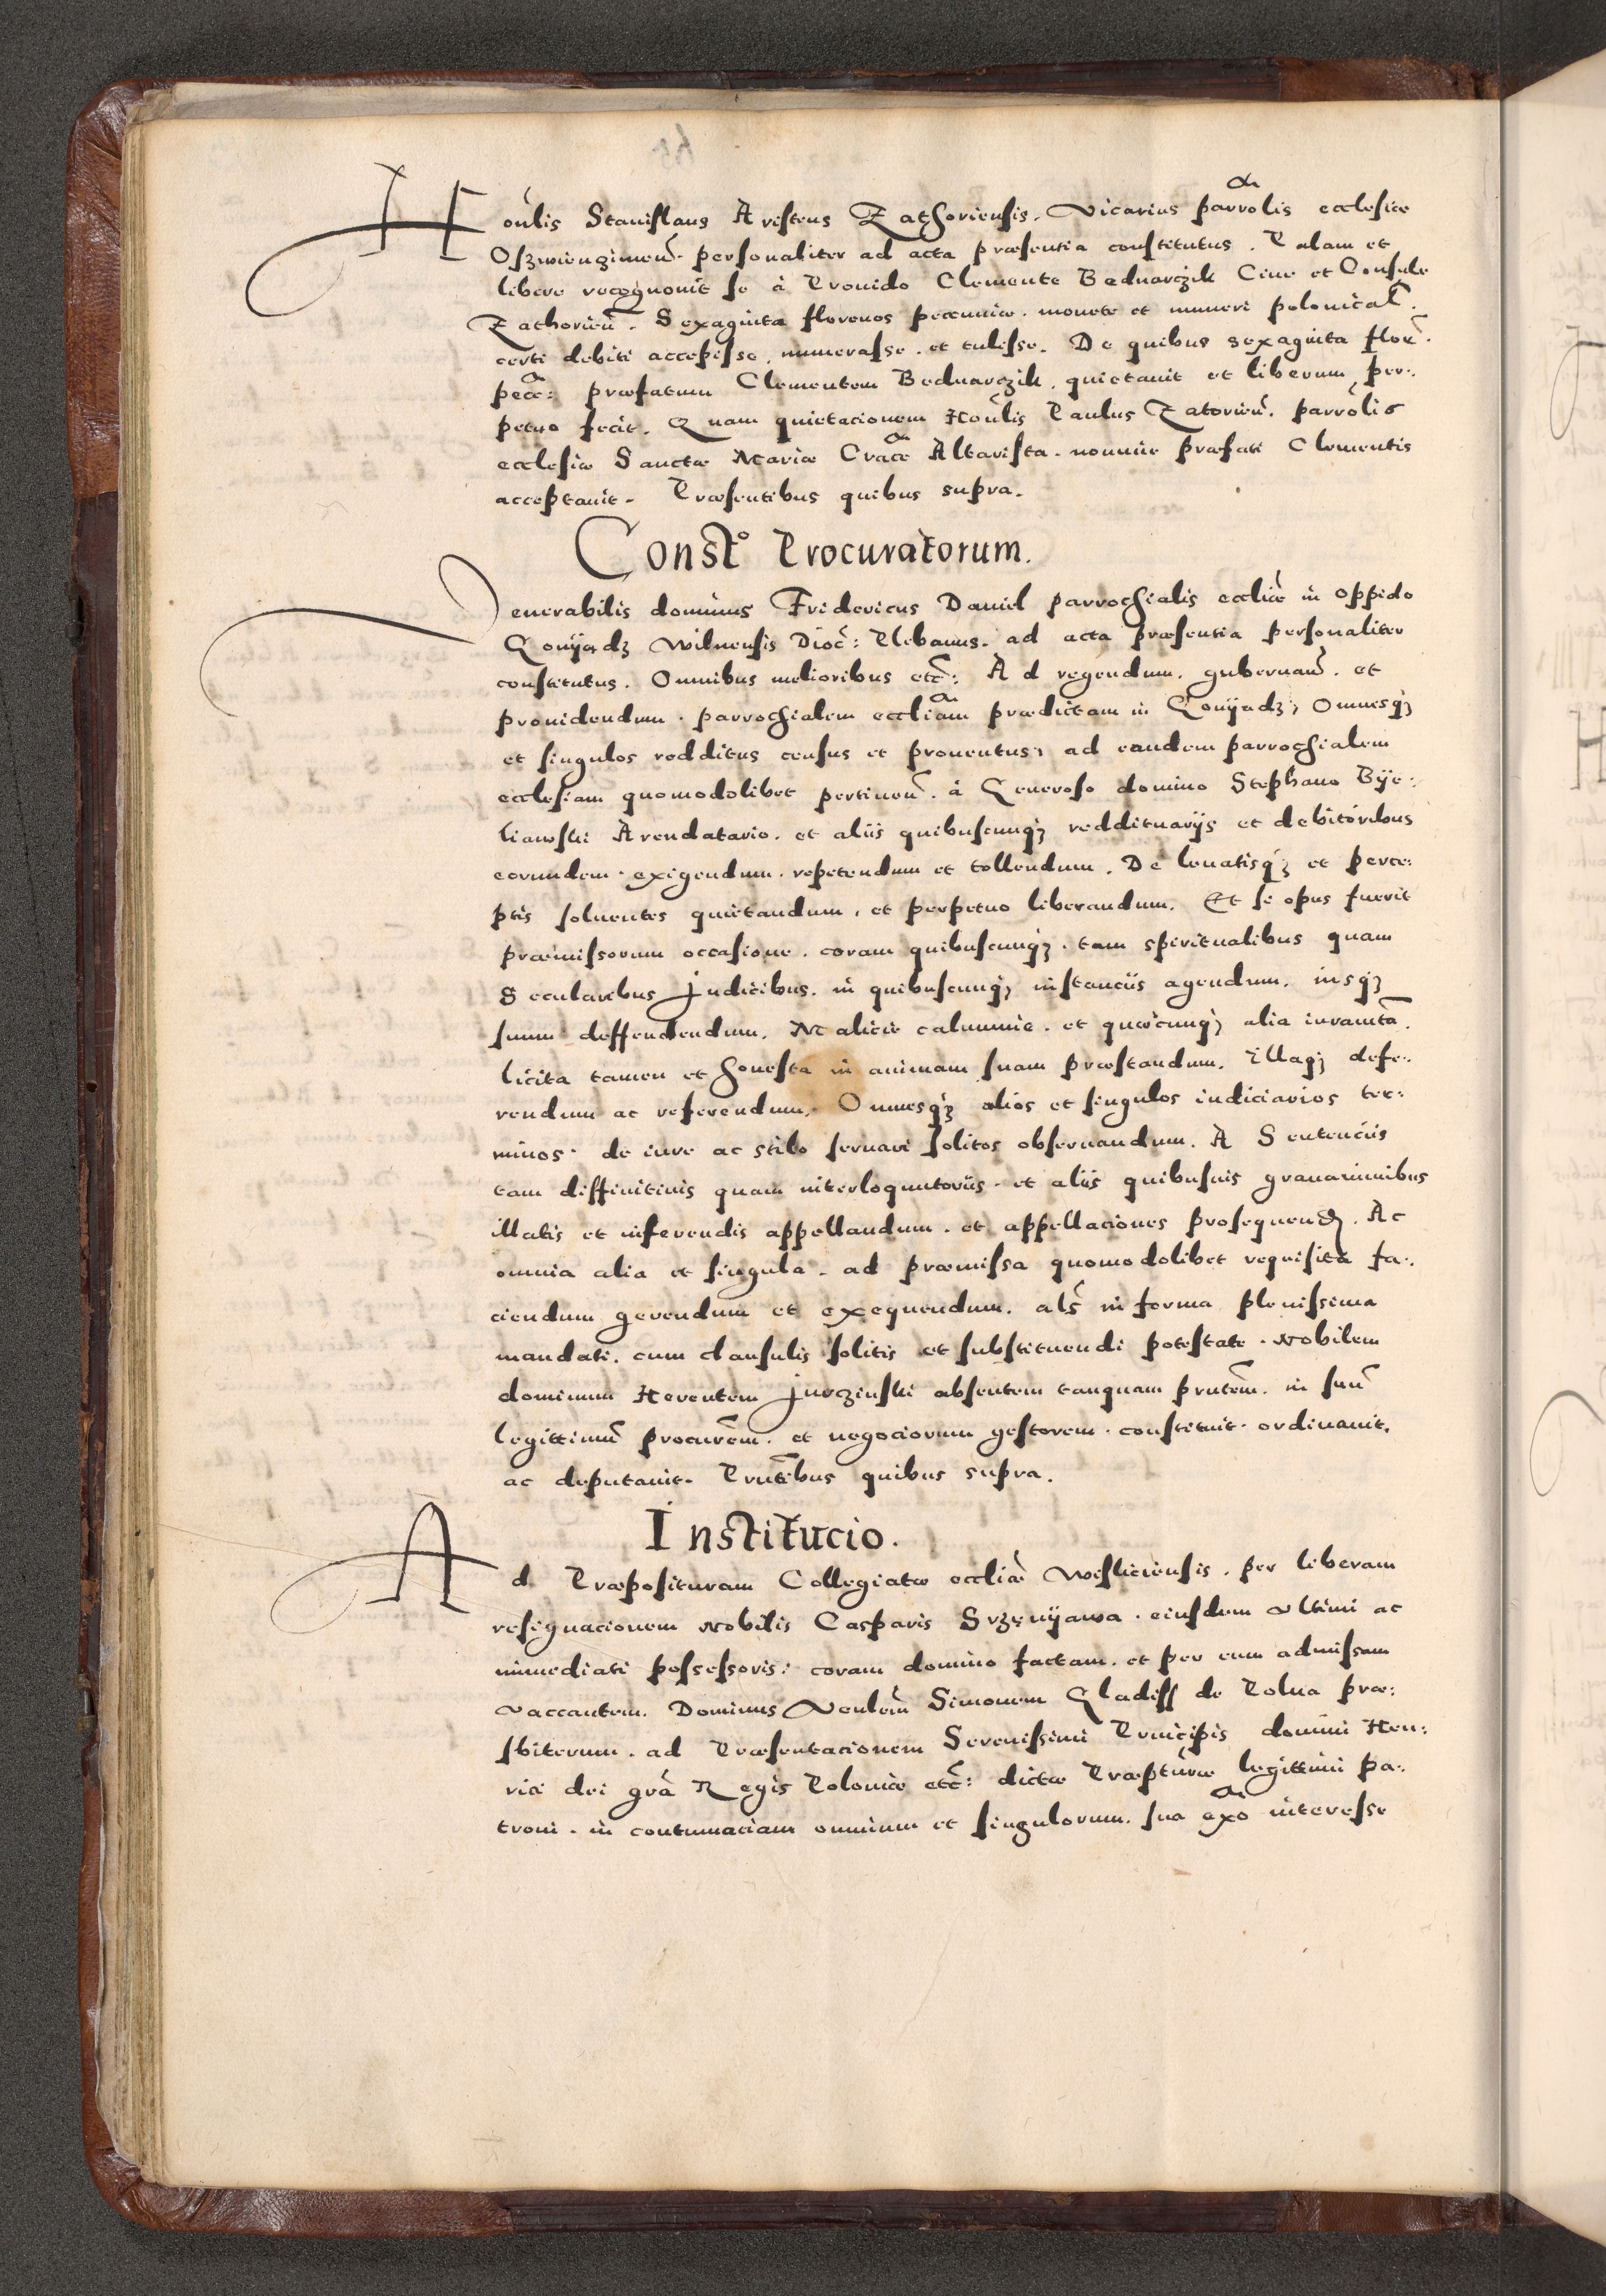 Honlis Stanislaus Aristeus Zathoriensis. Vicarius parrolis ecclesiæ
Oszwienzimen. personaliter ad acta præsentia constitutus. Palam et
libere recognovit se à Provido Clemente Bednarzik Cive et Consule
Zathorien. Sexaginta florenos pecuniæ. monete et numeri polonical.
certi debiti accepisse, numerasse. et tulisse. De quibus sexaginta flor.
pecæ: præfatum Clementem Bednarczik, quietavit et liberum per:
petuo fecit. Quam quietacionem Honlis Paulus Zatorien. parrolis
ecclesiæ Sanctæ Mariæ Cracæ Altarista. nomine præfati Clementis
acceptavit. Præsentibus quibus supra.
Constº Procuratorum.
Venerabilis dominus Fridericus Daniel parrochialis eccliæ in oppido
Gonyadz Wilnensis Dioc: Plebanus. ad acta præsentia personaliter
constitutus. Omnibus melioribus etc: Ad regendum. gubernan. et
providendum. parrochialem eccliam prædictam in Gonyadz, Omnesqȝ
et singulos redditus census et proventus, ad eandem parrochialem
ecclesiam quomodolibet pertinen. à Generoso domino Stephano Bye:
liawski Arendatario. et aliis quibuscunqȝ reddituarijs et debitoribus
eorundem. exigendum. repetendum et tollendum. De levatisqȝ et perce:
ptis solventes quietandum, et perpetuo liberandum. Et si opus fuerit
præmissorum occasione. coram quibuscunqȝ. tam spiritualibus quam
Secularibus Judicibus. in quibuscunqȝ instanciis agendum. iusqȝ
suum deffendendum. Malicie calumnie. et quæcunqȝ alia iuramta.
licita tamen et honesta in animam suam præstandum. illaqȝ defe:
rendum ac referendum. Omnesqȝ alios et singulos iudiciarios ter:
minos. de iure ac stilo servari solitos observandum. A Sentenciis
tam diffinitivis quam interloquutoriis. et aliis quibusvis gravaminibus
illatis et inferendis appellandum. et appellaciones prosequend. Ac
omnia alia et singula. ad præmissa quomodolibet requisita fa:
ciendum gerendum et exequendum. als in forma plenissima
mandati. cum clausulis solitis et substituendi potestate. Nobilem
dominum Herentem Jurzinski absentem tanquam prntem. in suu
legittimu procurem. et negociorum gestorem. constituit. ordinavit.
ac deputavit. Prntibus quibus supra.
Institucio.
Ad Præposituram Collegiatæ eccliæ Wisliciensis. per liberam
resignacionem Nobilis Casparis Srzenyawa. eiusdem Ultimi ac
immediati possessoris: coram domino factam. et per eum admissam
Vaccantem. Dominus Venlem Simonem Gladiss de Polna præ:
sbiterum. ad Præsentacionem Serenissimi Principis domini Hen:
rici dei gra Regis Poloniæ etc: dictæ Præpturæ legittimi pa:
troni. in contumaciam omnium et singulorum. sua exo interesse